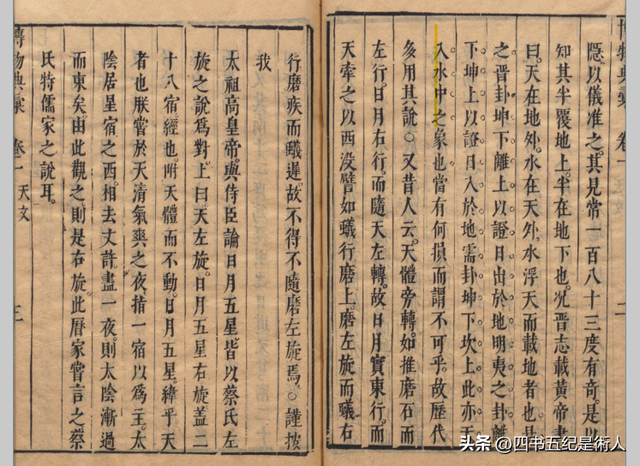 博物典彙 卷一
隱以儀准之其見常一百八十三度有奇是以
知其半覆地上半在地下也况晉志載黃帝書
曰天在地外水在天外水浮天而載地者也易
之晉卦坤下離上以證日出於地明夷之卦離
下坤上以證日入於地需卦坤下坎上此亦天
入水中之象也當有何損而謂不可乎故歷代
多用其說○又昔人云天體旁轉如推磨石而
左行日月右行而隨天左轉故日月實東行而
天牽之以西没譬如蟻行磨上磨左旋而蟻右
行磨疾而蟻遲故不得不隨磨左旋焉○謹按
我
太祖高皇帝與侍臣論日月五星皆以蔡氏左
旋之說爲對上曰天左旋日月五星右旋蓋二
十八宿經也附天體而不動日月五星緯乎天
者也朕嘗於天清氣爽之夜指一宿以爲主太
陰居星宿之西相去丈許盡一夜則太陰漸過
而東矣由此觀之則是右旋此曆家嘗言之蔡
氏特儒家之說耳
博物典彙 卷一 天文 三
头条 @四书五纪是術人